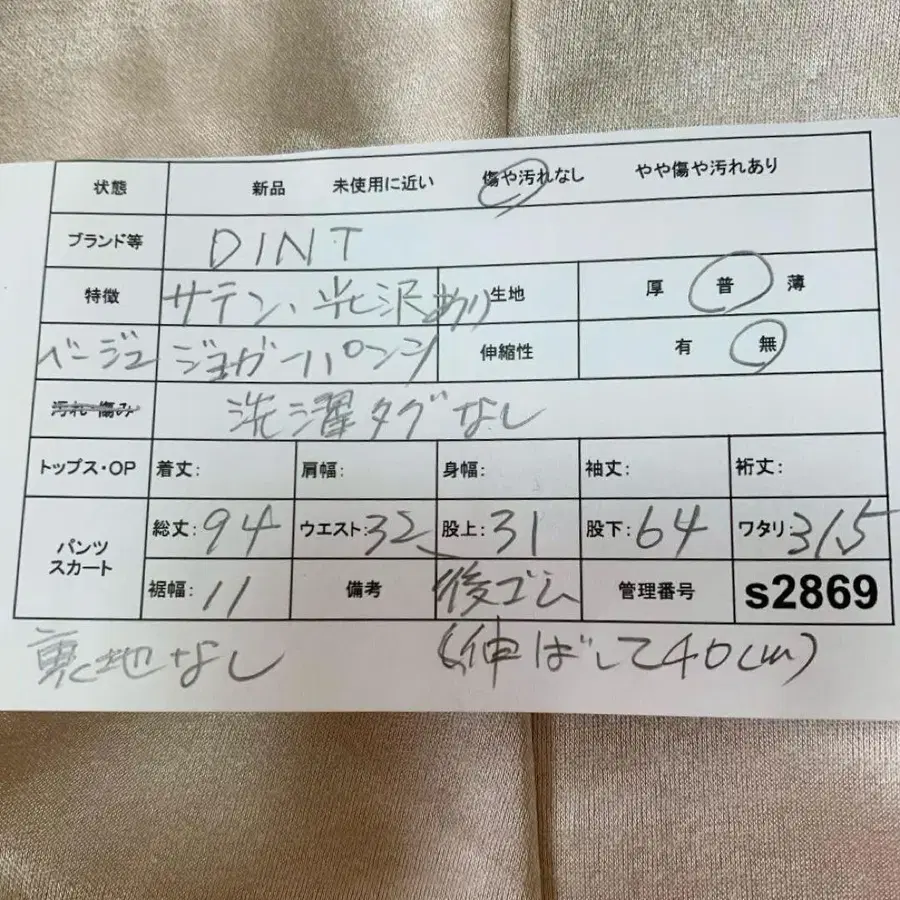 状態 新品 未使用に近い 傷や汚れなし やや傷や汚れあり
ブランド等 DINT
特徴 サテン、光沢あり 生地 厚 普 薄
ベージュ ジョガーパンツ 伸縮性 有 無
汚れ・傷み 洗濯タグなし
トップス・OP 着丈: 肩幅: 身幅: 袖丈: 裄丈:
パンツ スカート 総丈:94 ウエスト:32 股上:31 股下:64 ワタリ:31.5
裾幅:11 備考 後ゴム 管理番号 s2869
裏地なし (伸ばして40cm)